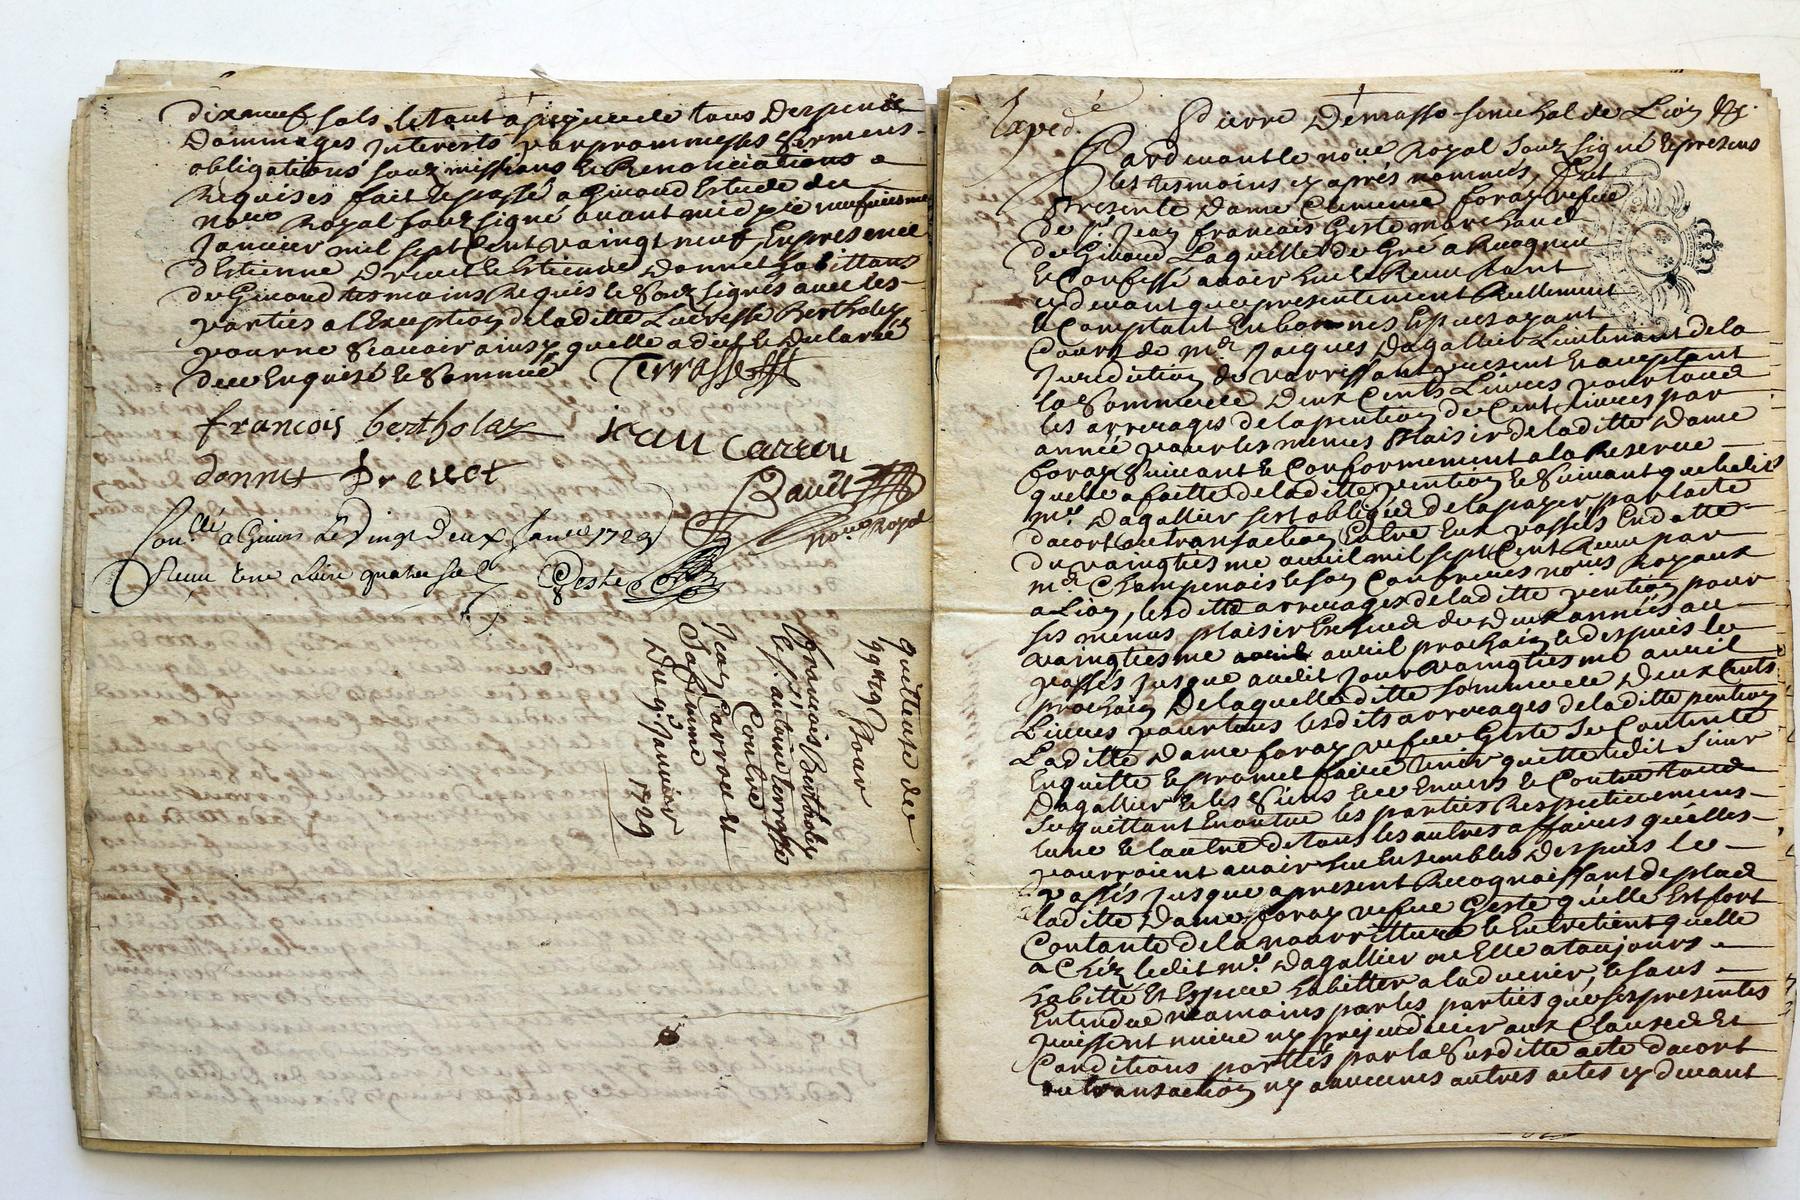 dixneuf sols, le tout a peyne de tous despens
Dommages Interests par promesses Sermens
obligations, Sousmissions & Renonciations a
Requises fait & passé a Givord Estude du
No.re Royal Sousigné avant midy ce neufviesme
Janvier mil sept Cent vaingt neuf, En presence
d'Estienne Drevet & Estienne Donnet habittans
de Givord tesmoins Requis & Sousignés avec les
parties a l'Exception de laditte Lucresse Bertholey
pour ne Scavoir ainsy quelle a dit & Declaré
dece Enquise & Sommée Terrasse
francois bertholay jean Carrou
donnet Drevet
Bauët
no.re Royal
Con.llé a Givors Le Vingt Deux Janvie 1729
Receu une Livre quatre sols Geste
quittance de
99 # 19 s pour
francois Bertholey
& s.r antoine terrasse
Contre
Jean Carrou et
Sa femme
Du 9.e Janvier
1729
Exped.é
Pierre Demasso Senechal de Lion &c.
Pardevant le no.re Royal Sousigné & presens
les tesmoins cy après nommés, fut
Presente Dame Clemence foray vefve
de S.r Jean francois Geste marchand
de Givord Laquelle de Gré a Recogneu
& Confessé avoir Eu & Receu tant
cy devant que presentement Reellement
& Comptant En bonnes Especes ayant
Cours de m.e Jacques Dagallier Lieutenant de la
Jurediction de present & acceptant
la Somme de Deux Cents Livres pour tous
les arrerages de la pention de Cent livres par
année pour les menus Plaisir de laditte Dame
foray Suivant & Conformement a la Reserve
quelle a faitte de laditte pention & Suivant que ledit
m.e Dagallier sest obligée de la payer par lacte
dacort ou transaction Entre Eux passés En datte
du vaingtiesme avril mil sept Cent Receu par
m.e Champenois & son Confrere no.res Royaux
a Lion, lesdits arrerages de laditte pention pour
ses menus plaisir Escheu de Deux années au
vaingtiesme avril prochain & despuis le
passés Jusque audit Jour vaingtiesme avril
prochain De laquelle ditte Somme de Deux Cents
Livres pour tous lesdits arrerages de laditte pention
Laditte Dame foray vefve Geste Se Contente
En quitte & promet faire tenir quitte ledit Sieur
Dagallier & les Siens Envers & Contre tous
Se quittant En outre les parties Respectivement
lune & lautre de tous les autres affaires quelles
pourroient avoir Eu Ensembles Despuis le
passés Jusque a present Recognoissant de plus
laditte Dame foray vefve Geste quelle Est fort
Contante de la nourriture & Entretient quelle
a Chéz ledit m.e Dagallier ou Elle a toujours
habitté Et Espere habitter a la devenir, & sans
Entendue neamoins par les parties que ses presentes
puissent nuire ny prejudicier aux Clauses Et
Conditions portées par la Susditte acte dacort
ou transaction ny aucunes autres actes cy devant